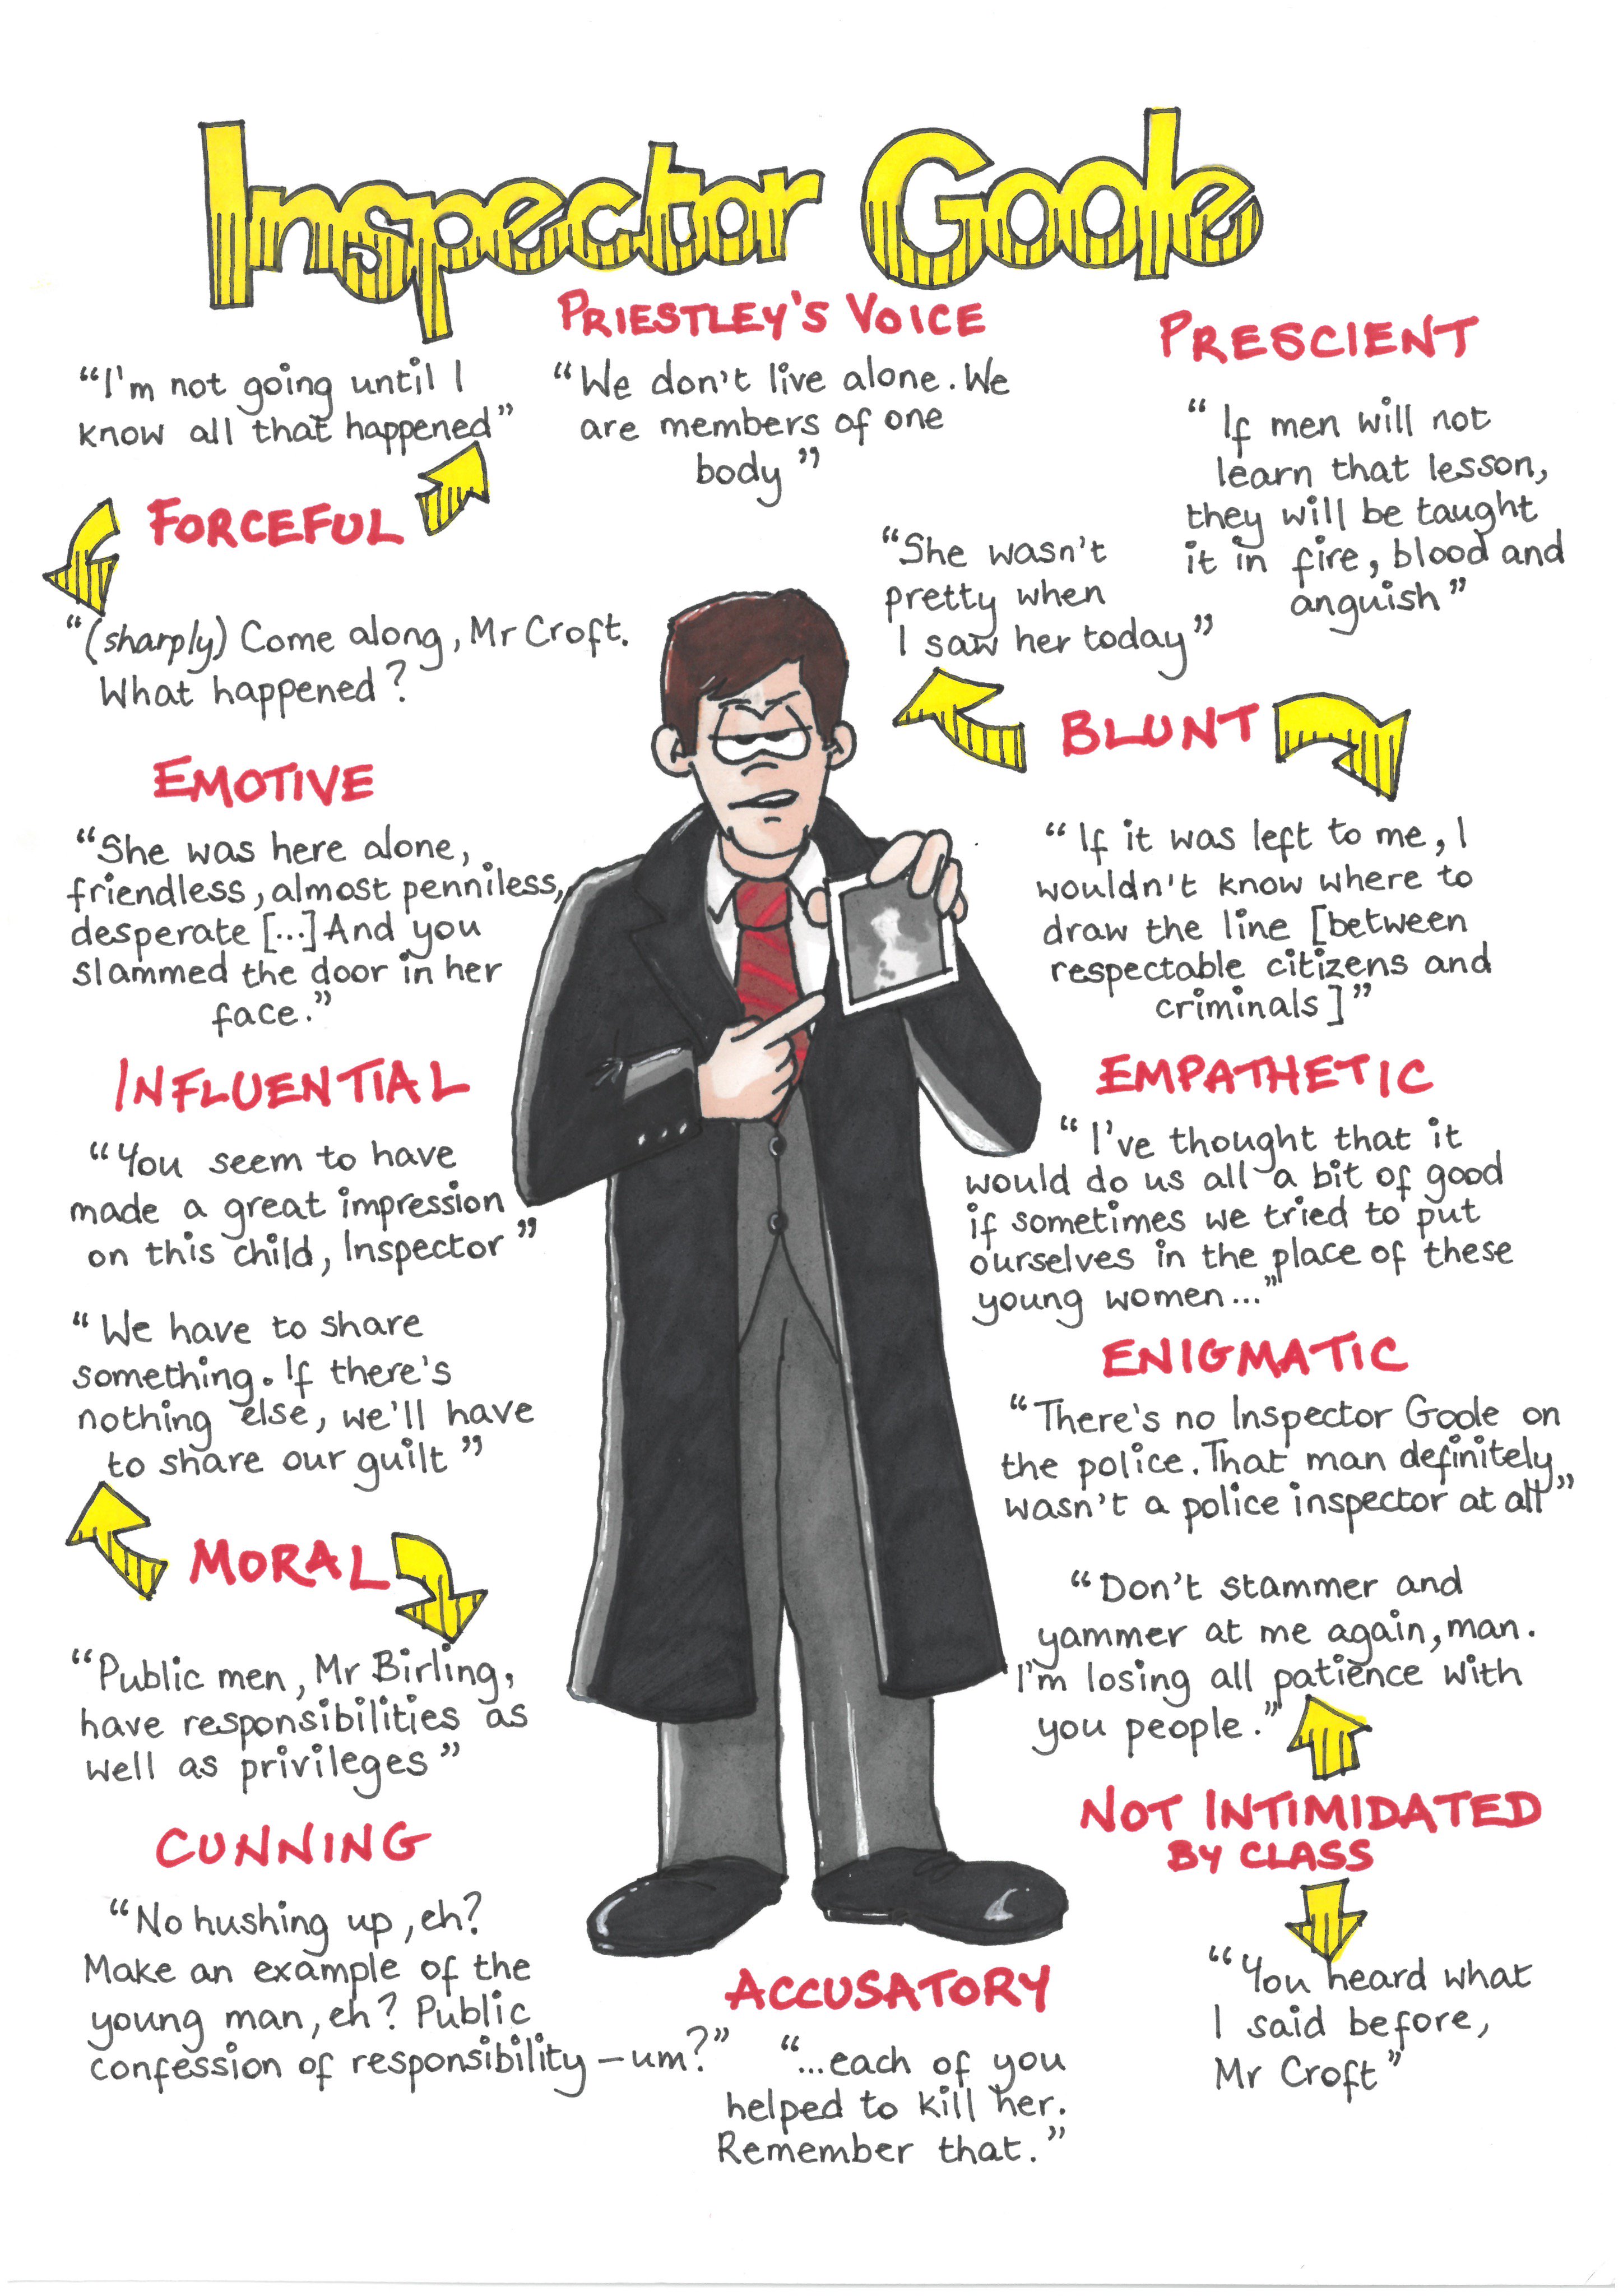 Inspector Goole
PRIESTLEY'S VOICE
"We don't live alone. We
are members of one
body"
PRESCIENT
"If men will not
learn that lesson,
they will be taught
it in fire, blood and
anguish"
"I'm not going until I
know all that happened"
FORCEFUL
"(sharply) Come along, Mr Croft.
What happened?
"She wasn't
pretty when
I saw her today"
BLUNT
"If it was left to me, I
wouldn't know where to
draw the line [between
respectable citizens and
criminals]"
EMOTIVE
"She was here alone,
friendless, almost penniless,
desperate [...] And you
slammed the door in her
face."
INFLUENTIAL
"You seem to have
made a great impression
on this child, Inspector"
EMPATHETIC
"I've thought that it
would do us all a bit of good
if sometimes we tried to put
ourselves in the place of these
young women..."
ENIGMATIC
"There's no Inspector Goole on
the police. That man definitely
wasn't a police inspector at all"
"We have to share
something. If there's
nothing else, we'll have
to share our guilt"
MORAL
"Public men, Mr Birling,
have responsibilities as
well as privileges"
"Don't stammer and
yammer at me again, man.
I'm losing all patience with
you people."
NOT INTIMIDATED
BY CLASS
"You heard what
I said before,
Mr Croft"
CUNNING
"No hushing up, eh?
Make an example of the
young man, eh? Public
confession of responsibility – um?"
ACCUSATORY
"...each of you
helped to kill her.
Remember that."